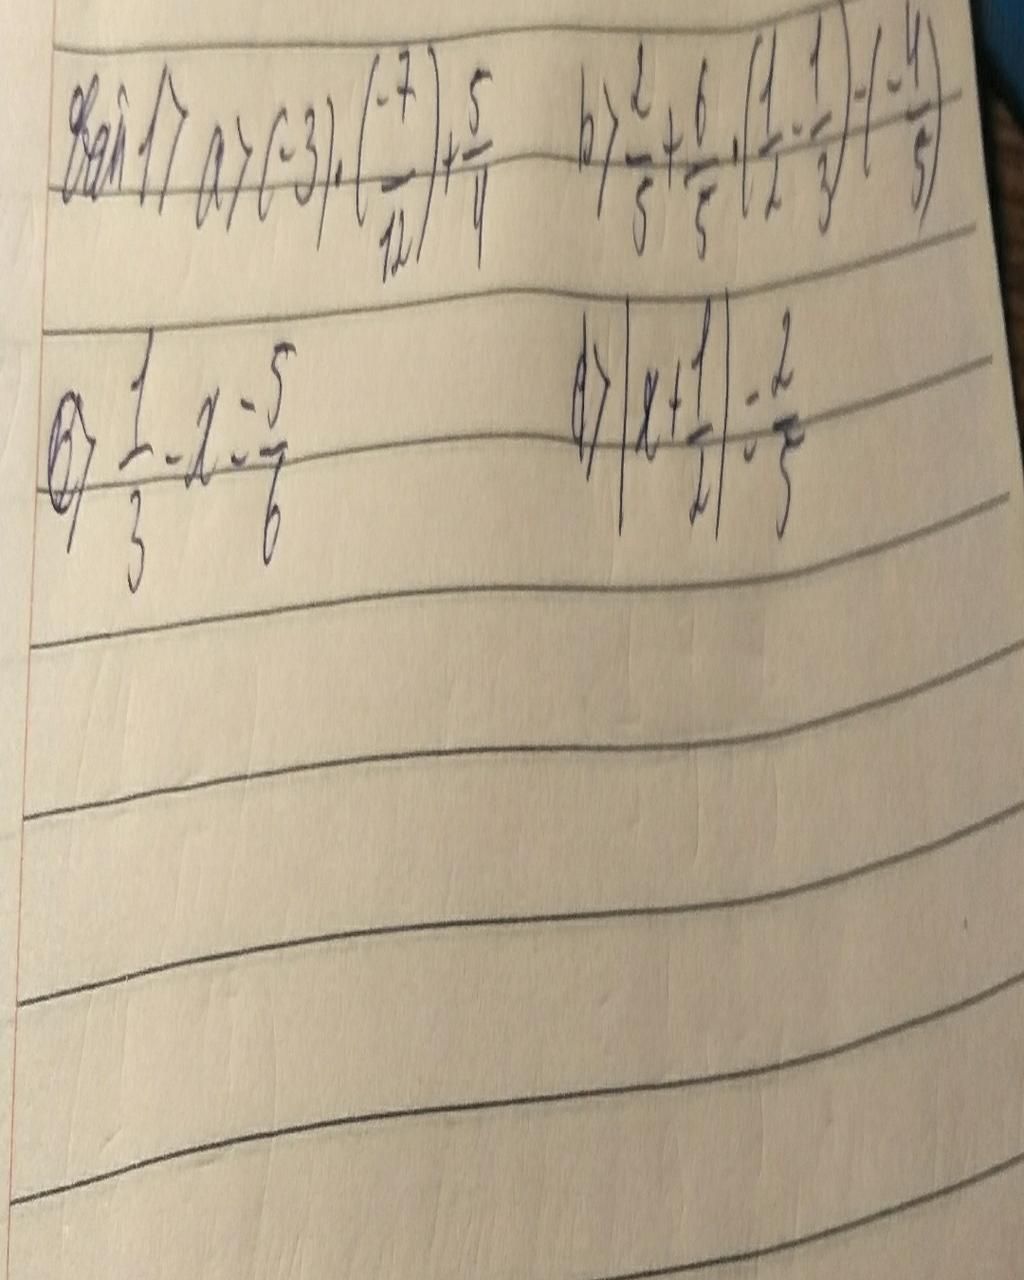 Bài 1> a> (-3) . (-7/12) + 5/4 b> 2/5 + 6/5 . (1/2 - 1/3) - (-4/5)
c> 1/3 - x = -5/6 d> |x + 1/2| = 2/5